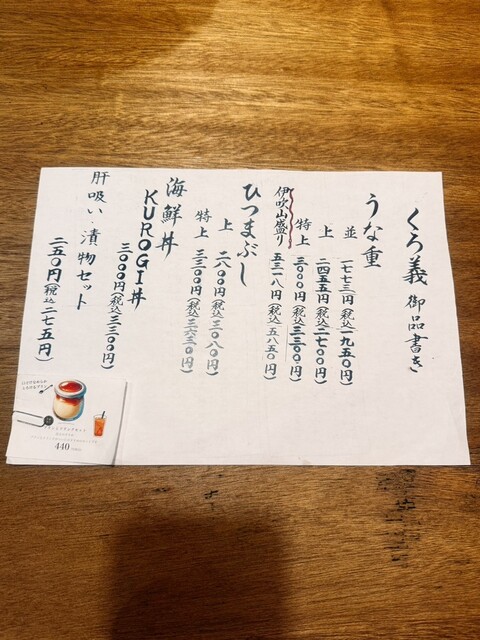 くろ義 御品書き
うな重
並 一七七三円(税込一九五〇円)
上 二四五五円(税込二七〇〇円)
特上 三〇〇〇円(税込三三〇〇円)
伊吹山盛り 五三一八円(税込五八五〇円)
ひつまぶし
上 二八〇〇円(税込三〇八〇円)
特上 三三〇〇円(税込三六三〇円)
海鮮丼
KUROGI丼
三〇〇〇円(税込三三〇〇円)
肝吸い・漬物セット
二五〇円(税込二七五円)
440